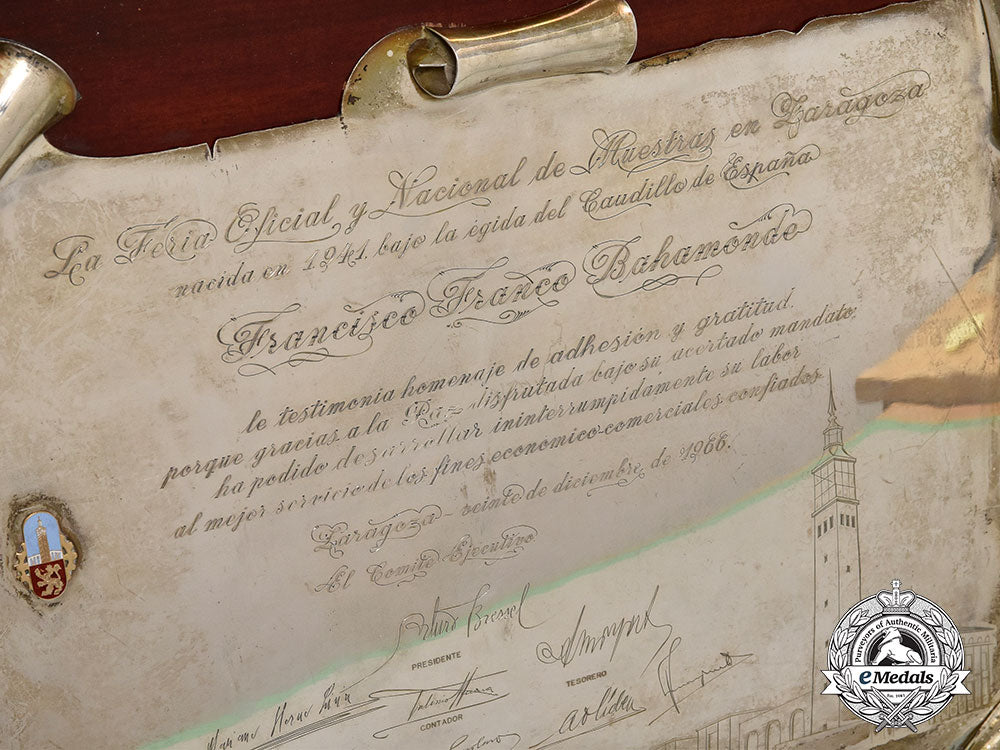 La Feria Oficial y Nacional de Muestras en Zaragoza
nacida en 1941, bajo la égida del Caudillo de España
Francisco Franco Bahamonde
le testimonia homenaje de adhesión y gratitud.
porque gracias a la Paz disfrutada bajo su acertado mandato
ha podido desarrollar ininterrumpidamente su labor
al mejor servicio de los fines económico-comerciales confiados
Zaragoza - veinte de diciembre de 1966.
El Comité Ejecutivo
Arturo Bressel
PRESIDENTE
TESORERO
CONTADOR
Purveyors of Authentic Militaria
eMedals